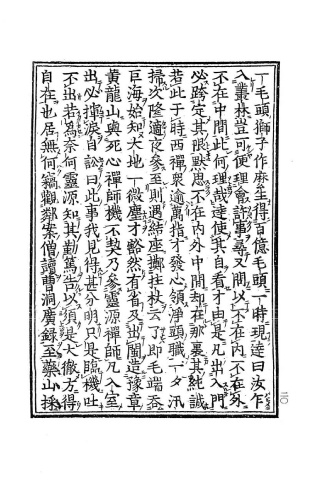 一毛頭獅子作麽生得百億毛頭一時現達曰汝乍
入叢林豈可便理會許事尋又問以不在内不在外
不在中間此何理哉達使其自看才由是凡出入門
必跨定其限默思不在内外中間却在那裏其純誠
若此于時西禪衆逾萬指才發心領淨頭職一夕汛
掃次隆適夜參至則遇結座擲拄杖云了即毛端吞
巨海始知大地一微塵才豁然有省及出閩造豫章
黄龍山與死心禪師機不契乃參靈源禪師凡入室
出必揮淚自訟曰此事我見得甚分明只是臨機吐
不出若爲奈何靈源知其勤篤告以須是大徹方得
自在也居無何竊觀鄰案僧讀曹洞廣錄至藥山採